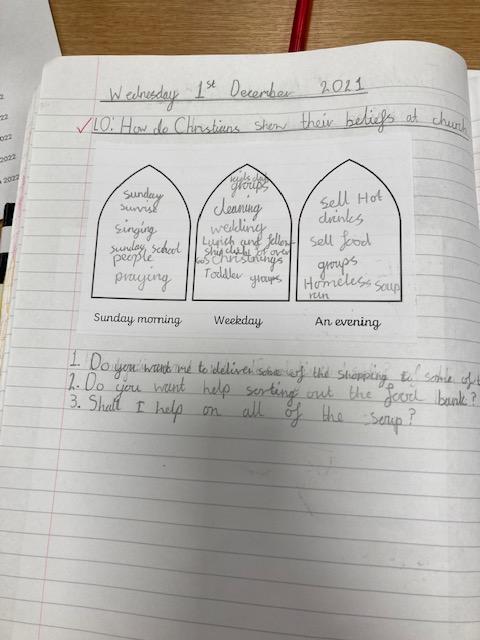 Wednesday 1st December 2021
LO: How do Christians show their beliefs at church
Sunday
Sunrise
Singing
Sunday school
people
praying
kids club
groups
cleaning
wedding
Lunch and fellow-
ship club for over
60s Christnings
Toddler groups
sell Hot
drinks
sell food
groups
Homeless soup
run
Sunday morning
Weekday
An evening
1. Do you want me to deliver some of the shopping to some of
2. Do you want help sorting out the food bank?
3. Shall I help on all of the soup?
2022
2022
2022